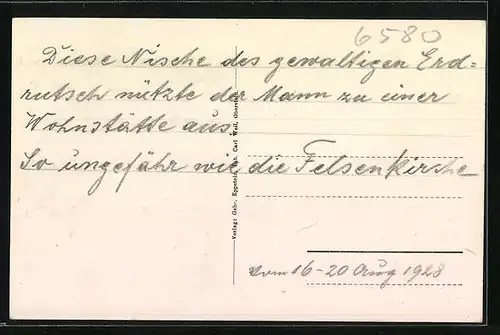 6580
Diese Nische des gewaltigen Erd=
rutsch nützte der Mann zu einer
Wohnstätte aus.
So ungefähr wie die Felsenkirche
vom 16-20 Aug 1928
Verlag: Gebr. Eppstein, Inh. Carl Weil, Oberstein